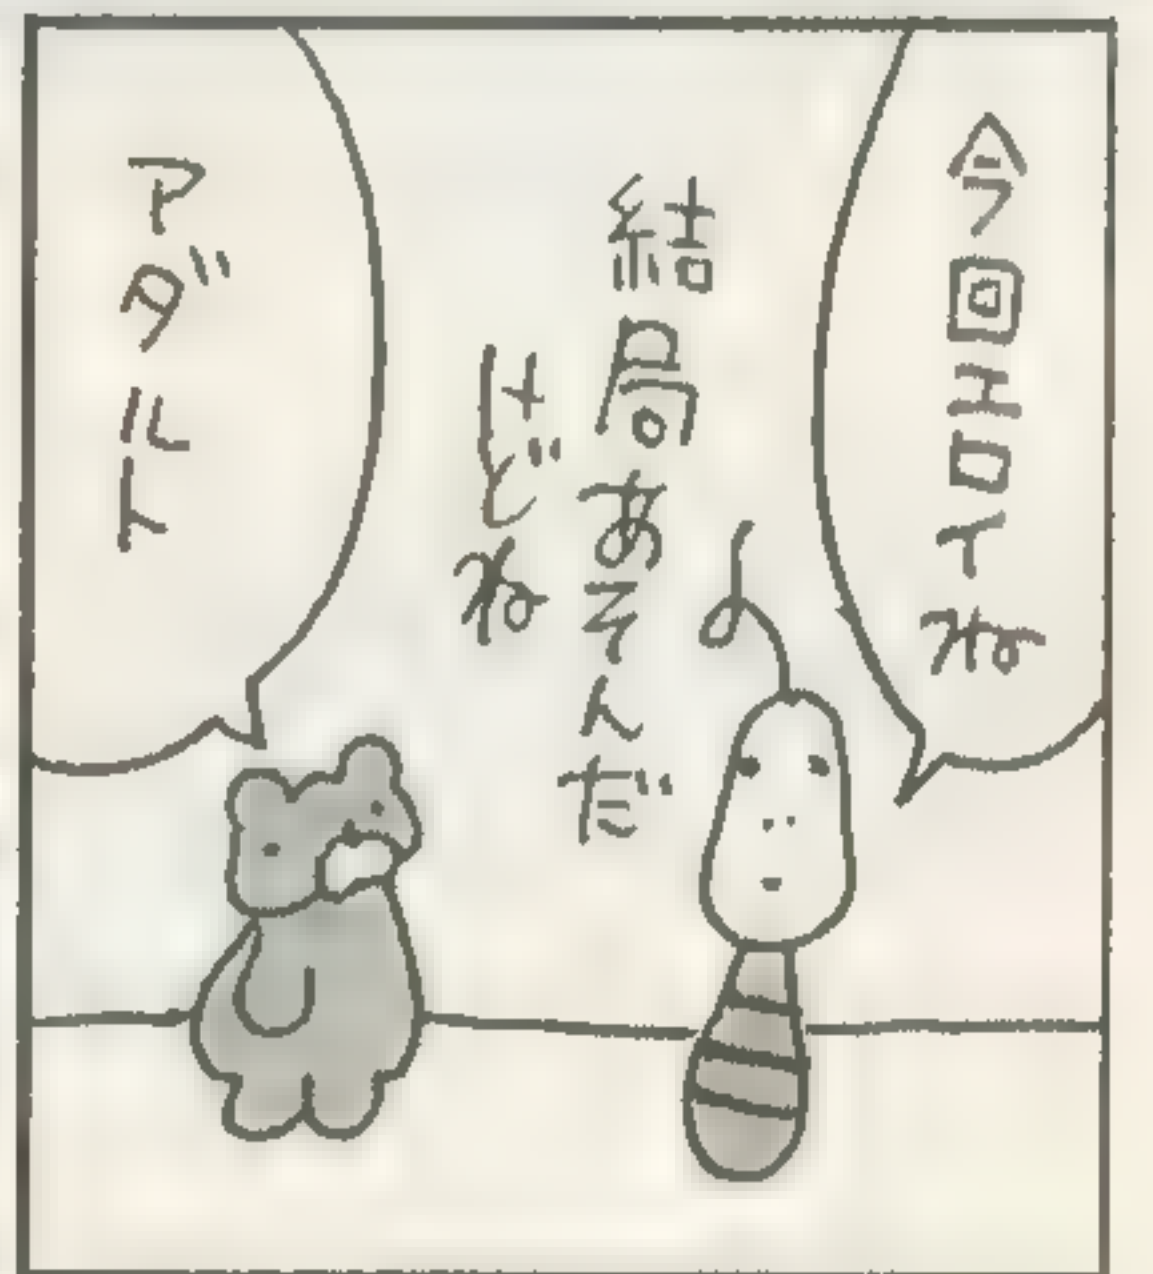 今回エロイね
結局あそんだ
けどね
アダルト